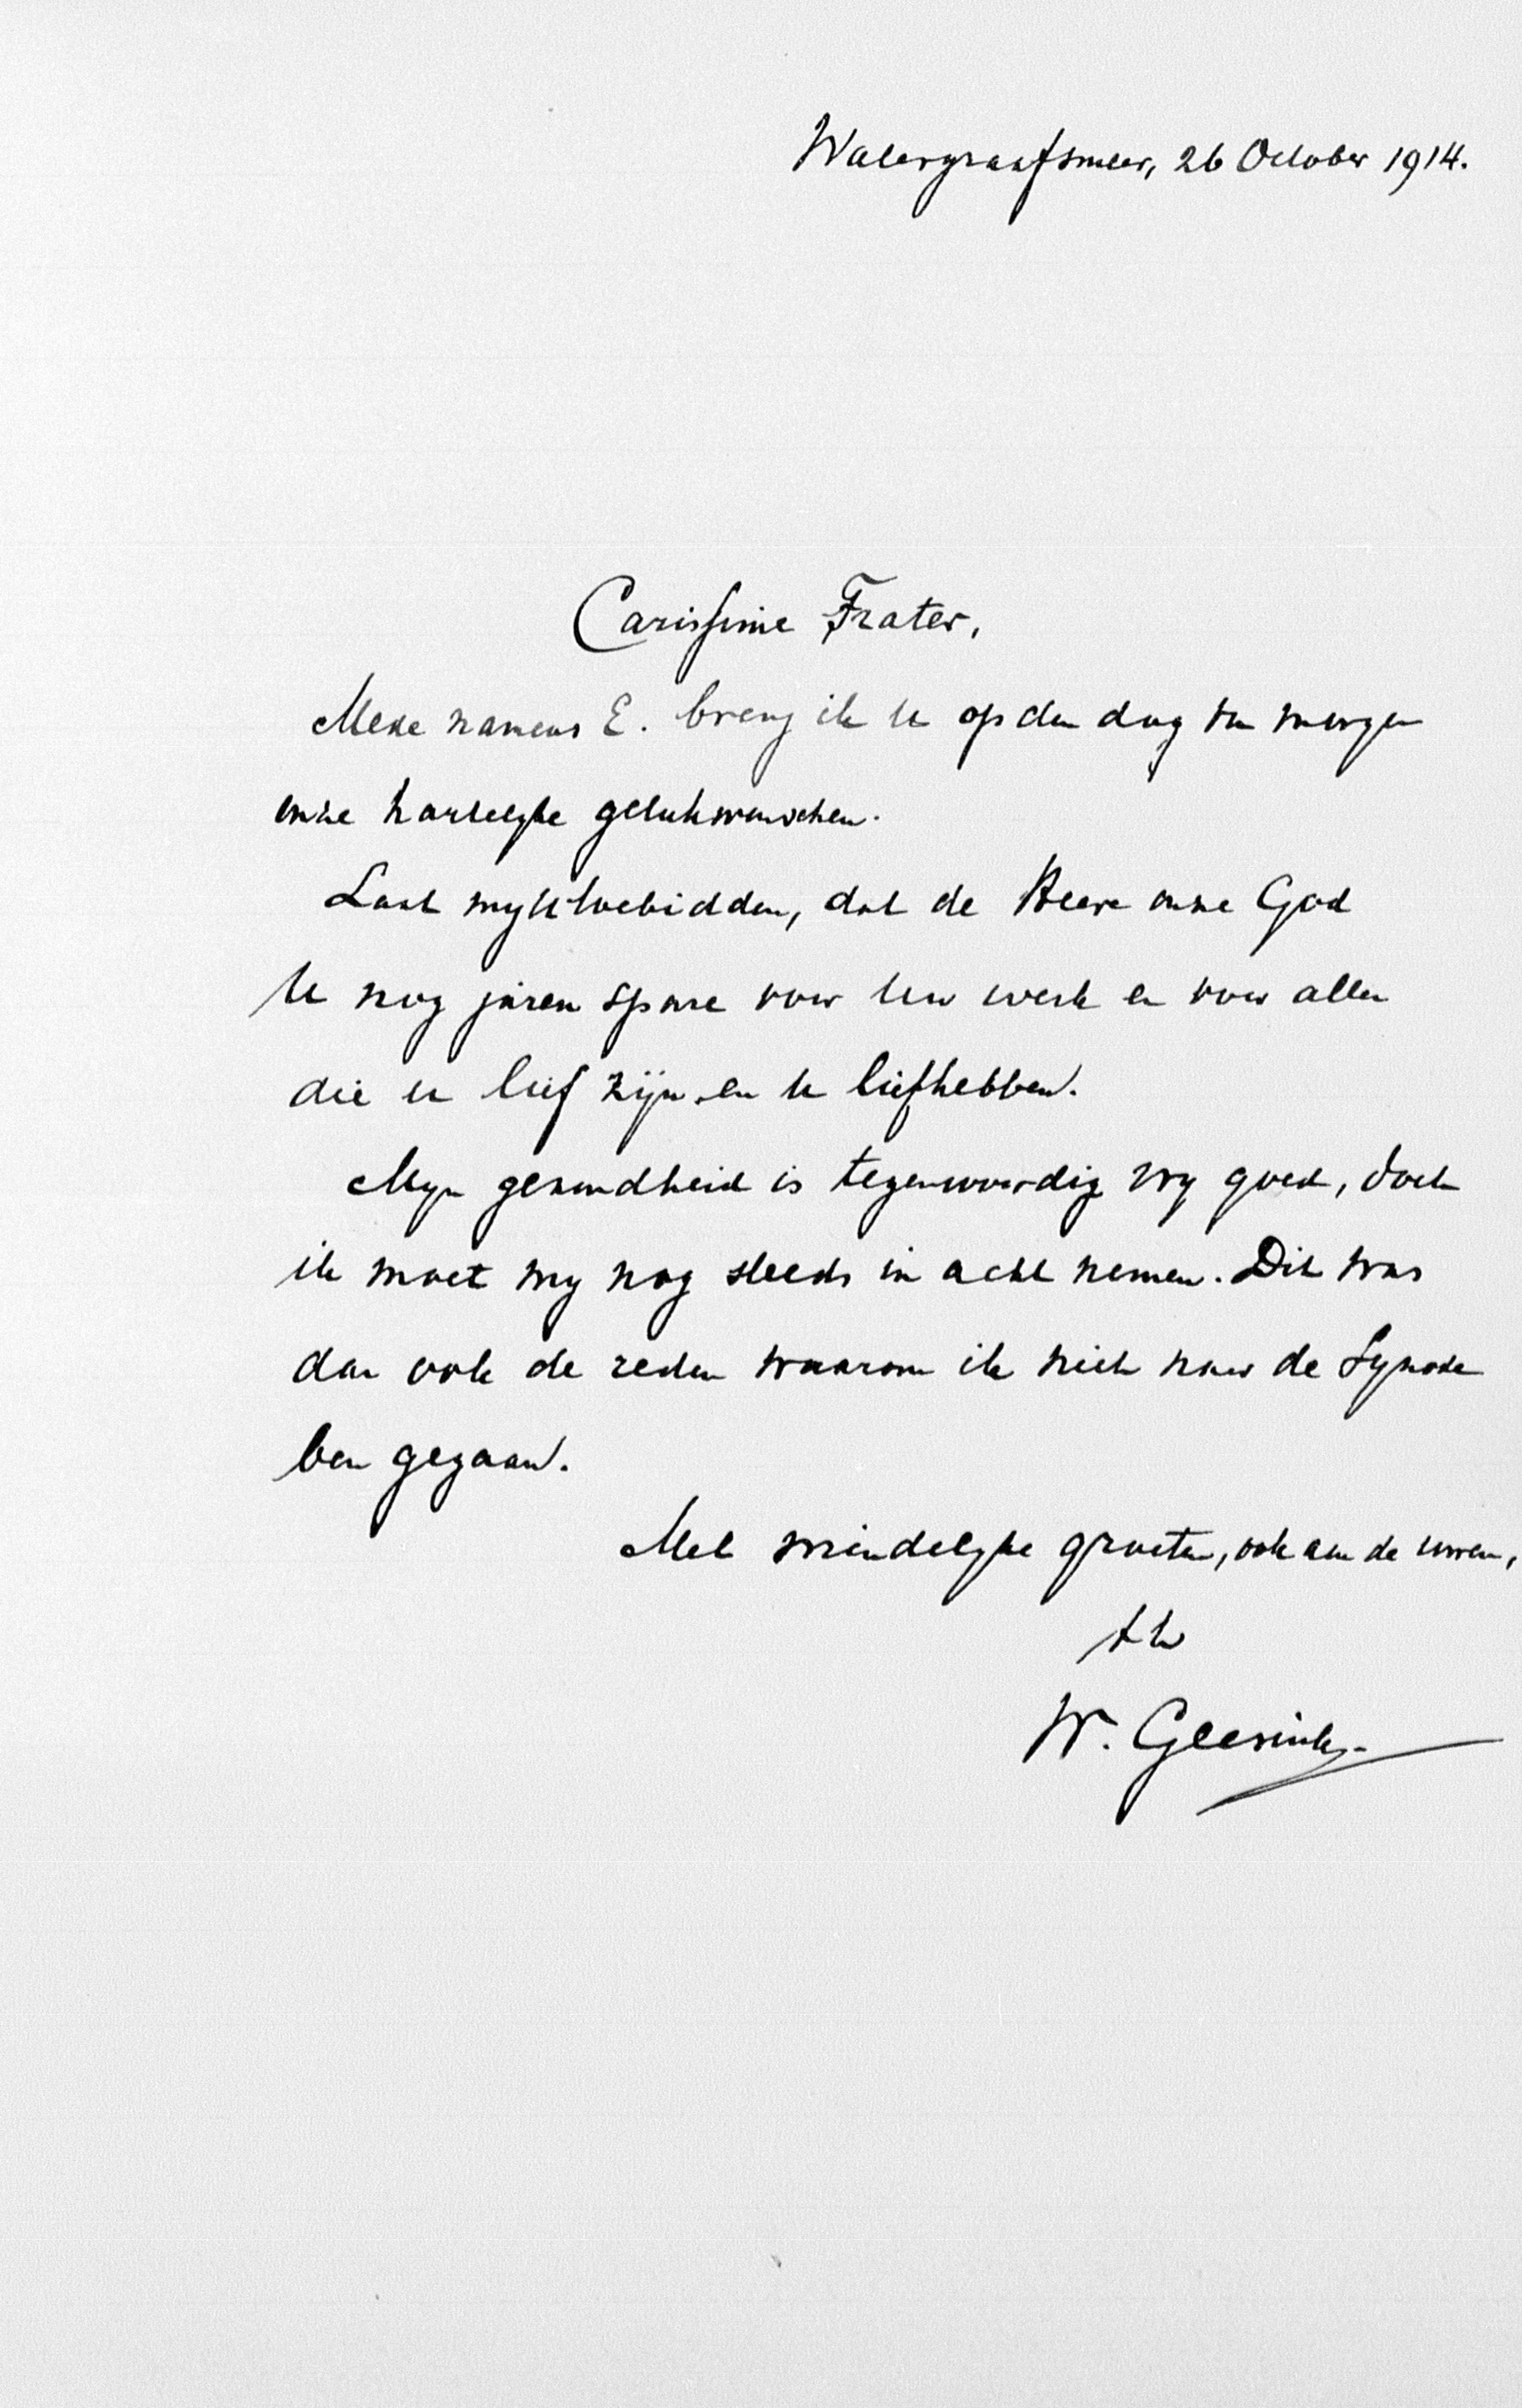 Watergraafsmeer, 26 October 1914.
Carissime Frater,
Mede namens E. breng ik U op den dag van morgen
onze hartelyke gelukwenschen.
Laat my U toebidden, dat de Heere onze God
U nog jaren spare voor Uw werk en voor allen
die U lief zijn en U liefhebben.
Myn gezondheid is tegenwoordig vry goed, doch
ik moet my nog steeds in acht nemen. Dit was
dan ook de reden waarom ik niet naar de Synode
ben gegaan.
Met vriendelyke groeten, ook aan de uwen,
tt
W. Geesink